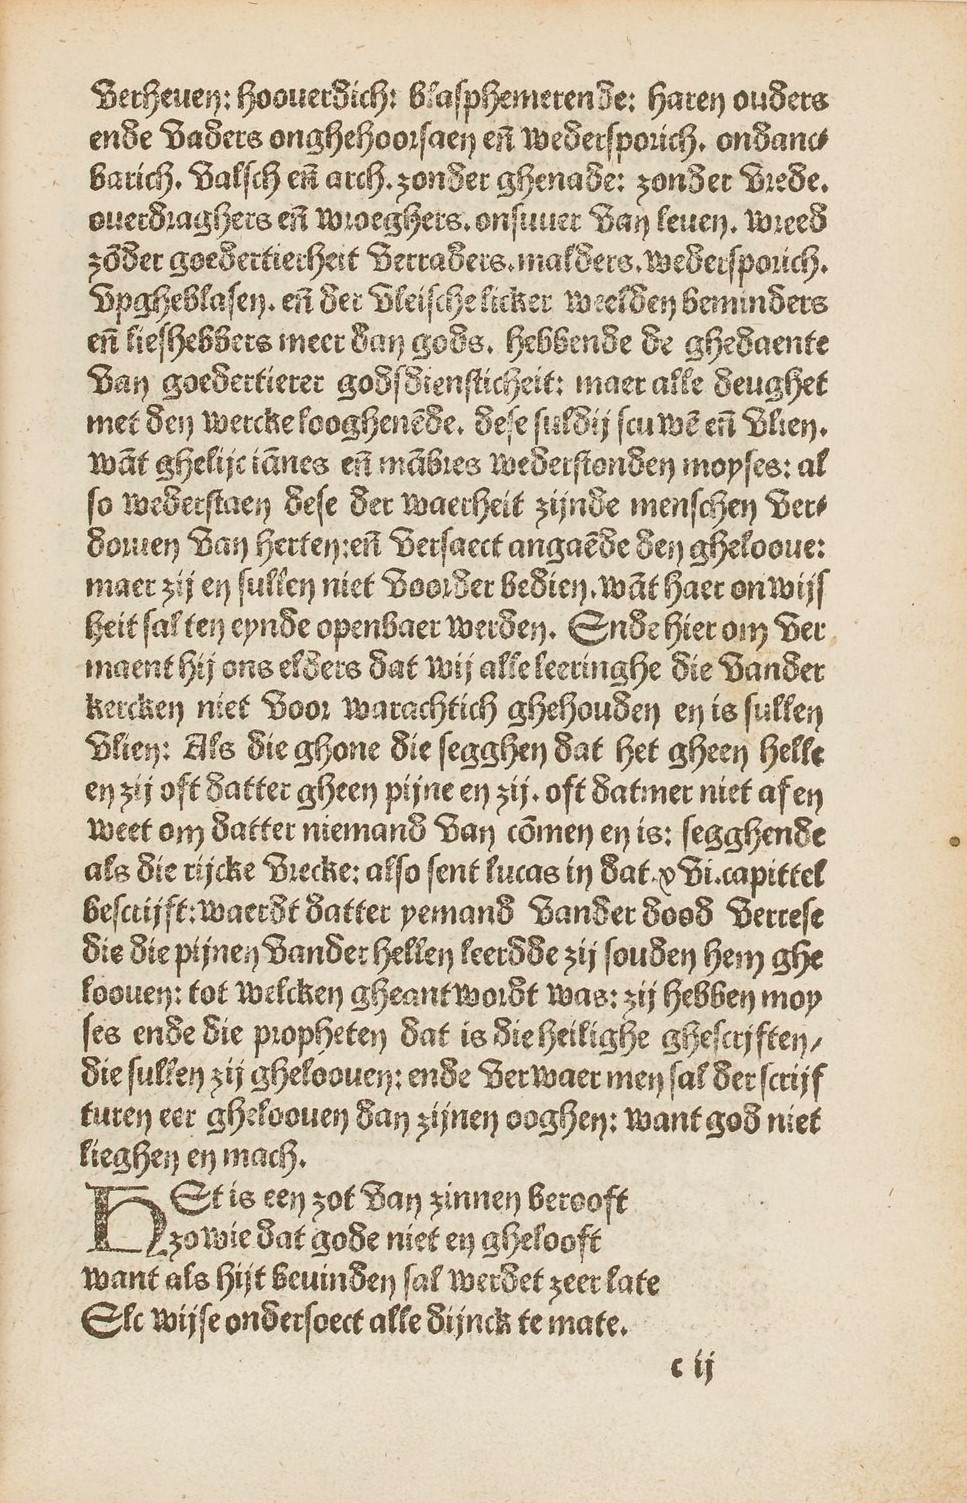 verheuen: hoouerdich: blasphemerende: haren ouders
ende vaders onghehoorsaen eñ wedersporich. ondanc⸗
barich. valsch eñ arch. zonder ghenade: zonder vrede.
ouerdraghers eñ wroeghers. onsuuer van leuen. wreed
zōder goedertierheit verraders. malders. wedersporich.
vpgheblasen. eñ der vleischelicker weelden beminders
eñ liefhebbers meer dan gods. hebbende de ghedaente
van goedertierer godsdiensticheit: maer alle deughet
met den wercke looghenēde. dese suldij scuwē eñ vlien.
wāt ghelijc iānes eñ mābres wederstonden moyses: al
so wederstaen dese der waerheit zijnde menschen ver⸗
doruen van herten: eñ versaect angaēde den ghelooue:
maer zij en sullen niet voorder bedien. wāt haer onwijs
heit sal ten eynde openbaer werden. Ende hier om ver
maent hij ons elders dat wij alle leeringhe die vander
kercken niet voor warachtich ghehouden en is sullen
vlien: Als die ghone die segghen dat het gheen helle
en zij oft datter gheen pijne en zij. oft datmer niet af en
weet om datter niemand van cōmen en is: segghende
als die rijcke vrecke: also sent lucas in dat .xvi. capittel
bescrijft: waerdt datter yemand vander dood verrese
die die pijnen vander hellen leerdde zij souden hem ghe
loouen: tot welcken gheantwordt was: zij hebben moy
ses ende die propheten dat is die heilighe ghescrjften/
die sullen zij gheloouen: ende verwaer men sal der scrijf
turen eer gheloouen dan zijnen ooghen: want god niet
lieghen en mach.
HEt is een zot van zinnen berooft
zo wie dat gode niet en ghelooft
want als hijt beuinden sal werdet zeer late
Elc wijse ondersoect alle dijnck te mate.
c ij